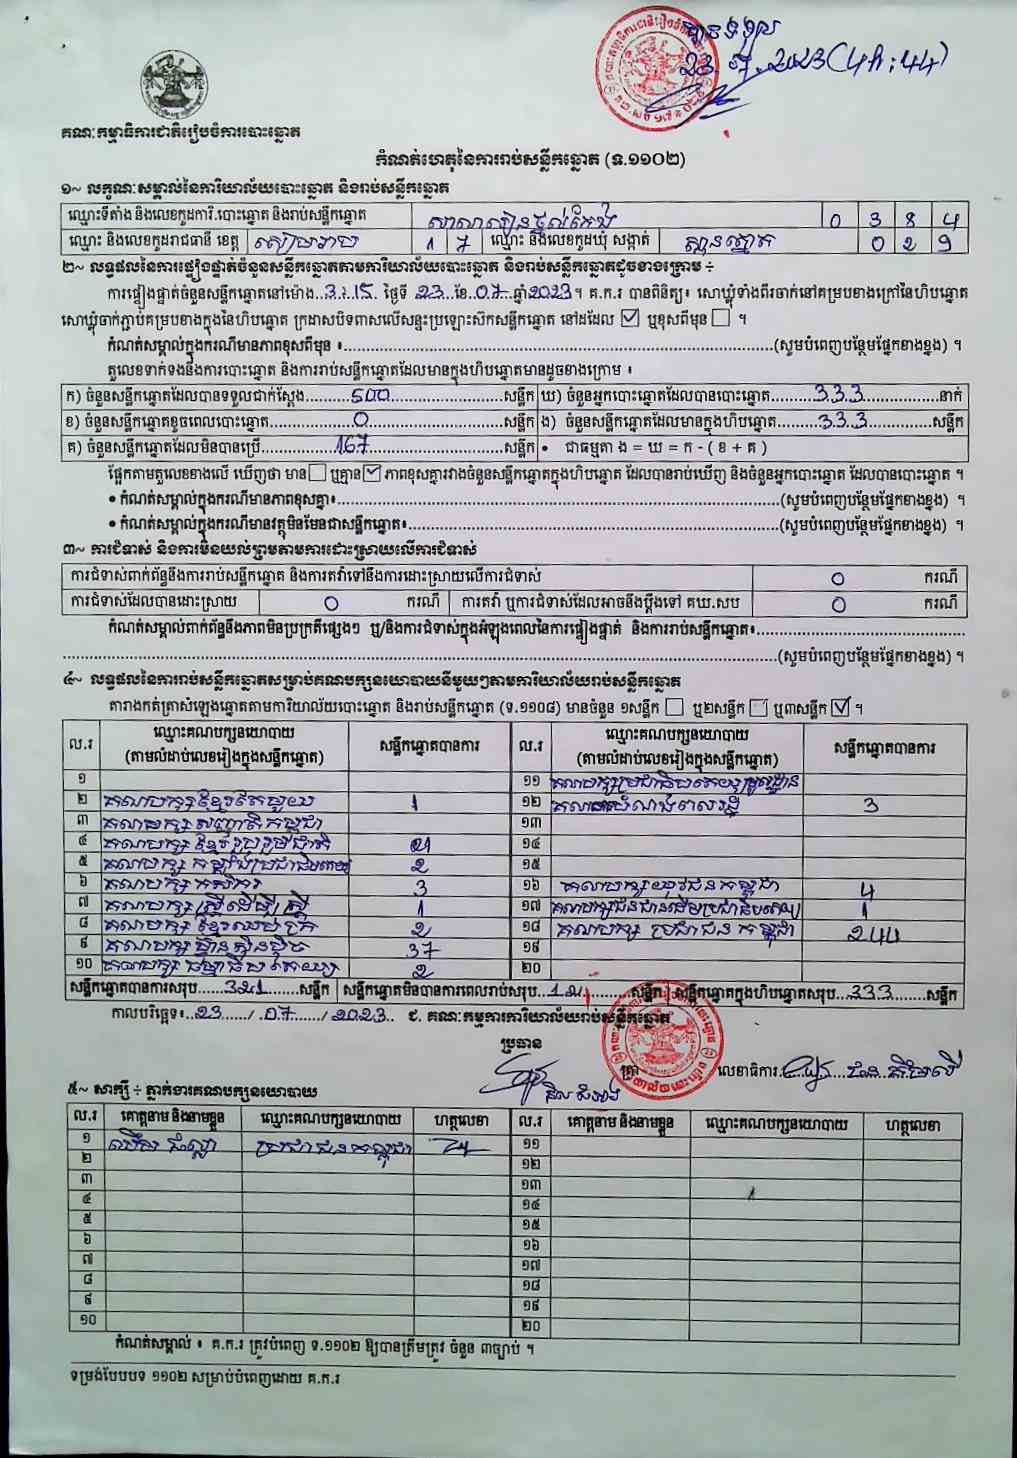 បានទទួល
23.7.2023 (4h:44)
គណៈកម្មាធិការជាតិរៀបចំការបោះឆ្នោត
កំណត់ហេតុនៃការរាប់សន្លឹកឆ្នោត (ទ.១១០២)
១~ លក្ខណៈសម្គាល់នៃការិយាល័យបោះឆ្នោត និងរាប់សន្លឹកឆ្នោត
ឈ្មោះទីតាំង និងលេខកូដការិ.បោះឆ្នោត និងរាប់សន្លឹកឆ្នោត សាលារៀន 0 3 8 4
ឈ្មោះ និងលេខកូដរាជធានី ខេត្ត សៀមរាប 1 7 ឈ្មោះ និងលេខកូដឃុំ សង្កាត់ 0 2 9
២~ លទ្ធផលនៃការផ្ទៀងផ្ទាត់ចំនួនសន្លឹកឆ្នោតតាមការិយាល័យបោះឆ្នោត និងរាប់សន្លឹកឆ្នោតដូចខាងក្រោម ÷
ការផ្ទៀងផ្ទាត់ចំនួនសន្លឹកឆ្នោតនៅម៉ោង..3:15.. ថ្ងៃទី 23 ខែ.07..ឆ្នាំ2023។ គ.ក.រ បានពិនិត្យ៖ សោឃ្លុំទាំងពីរចាក់នៅគម្របខាងក្រៅនៃហិបឆ្នោត
សោឃ្លុំចាក់ភ្ជាប់គម្របខាងក្នុងនៃហិបឆ្នោត ក្រដាសបិទពាសលើសន្ទះប្រឡោះស៊កសន្លឹកឆ្នោត នៅដដែល ☑ ឬខុសពីមុន ☐ ។
កំណត់សម្គាល់ក្នុងករណីមានភាពខុសពីមុន ៖..........(សូមបំពេញបន្ថែមផ្នែកខាងខ្នង) ។
តួលេខទាក់ទងនឹងការបោះឆ្នោត និងការរាប់សន្លឹកឆ្នោតដែលមានក្នុងហិបឆ្នោតមានដូចខាងក្រោម ៖
ក) ចំនួនសន្លឹកឆ្នោតដែលបានទទួលជាក់ស្តែង..........500..........សន្លឹក ឃ) ចំនួនអ្នកបោះឆ្នោតដែលបានបោះឆ្នោត..........333..........នាក់
ខ) ចំនួនសន្លឹកឆ្នោតខូចពេលបោះឆ្នោត..........0..........សន្លឹក ង) ចំនួនសន្លឹកឆ្នោតដែលមានក្នុងហិបឆ្នោត..........333..........សន្លឹក
គ) ចំនួនសន្លឹកឆ្នោតដែលមិនបានប្រើ..........167..........សន្លឹក • ជាធម្មតា ង = ឃ = ក - ( ខ + គ )
ផ្អែកតាមតួលេខខាងលើ ឃើញថា មាន ☐ ឬគ្មាន ☑ ភាពខុសគ្នារវាងចំនួនសន្លឹកឆ្នោតក្នុងហិបឆ្នោត ដែលបានរាប់ឃើញ និងចំនួនអ្នកបោះឆ្នោត ដែលបានបោះឆ្នោត ។
• កំណត់សម្គាល់ក្នុងករណីមានភាពខុសគ្នា៖..........(សូមបំពេញបន្ថែមផ្នែកខាងខ្នង) ។
• កំណត់សម្គាល់ក្នុងករណីមានវត្ថុមិនមែនជាសន្លឹកឆ្នោត៖..........(សូមបំពេញបន្ថែមផ្នែកខាងខ្នង) ។
៣~ ការជំទាស់ និងការមិនយល់ព្រមតាមការដោះស្រាយលើការជំទាស់
ការជំទាស់ពាក់ព័ន្ធនឹងការរាប់សន្លឹកឆ្នោត និងការតវ៉ាទៅនឹងការដោះស្រាយលើការជំទាស់ 0 ករណី
ការជំទាស់ដែលបានដោះស្រាយ 0 ករណី ការតវ៉ា ឬការជំទាស់ដែលអាចនឹងប្តឹងទៅ គឃ.សប 0 ករណី
កំណត់សម្គាល់ពាក់ព័ន្ធនឹងភាពមិនប្រក្រតីផ្សេងៗ ឬ/និងការជំទាស់ក្នុងអំឡុងពេលនៃការផ្ទៀងផ្ទាត់ និងការរាប់សន្លឹកឆ្នោត៖..........
..........(សូមបំពេញបន្ថែមផ្នែកខាងខ្នង) ។
៤~ លទ្ធផលនៃការរាប់សន្លឹកឆ្នោតសម្រាប់គណបក្សនយោបាយនីមួយៗតាមការិយាល័យរាប់សន្លឹកឆ្នោត
តារាងកត់ត្រាសំឡេងឆ្នោតតាមការិយាល័យបោះឆ្នោត និងរាប់សន្លឹកឆ្នោត (ទ.១១០៨) មានចំនួន ១សន្លឹក ☐ ឬ២សន្លឹក ☐ ឬ៣សន្លឹក ☑ ។
ល.រ ឈ្មោះគណបក្សនយោបាយ (តាមលំដាប់លេខរៀងក្នុងសន្លឹកឆ្នោត) សន្លឹកឆ្នោតបានការ ល.រ ឈ្មោះគណបក្សនយោបាយ (តាមលំដាប់លេខរៀងក្នុងសន្លឹកឆ្នោត) សន្លឹកឆ្នោតបានការ
១ ១១ គណបក្សប្រជាធិបតេយ្យមូលដ្ឋាន
២ គណបក្សខ្មែរតែមួយ 1 ១២ គណបក្សសំណាងពលរដ្ឋ 3
៣ គណបក្សសញ្ជាតិកម្ពុជា ១៣
៤ គណបក្សខ្មែររួបរួមជាតិ 21 ១៤
៥ គណបក្សកម្លាំងប្រជាធិបតេយ្យ 2 ១៥
៦ គណបក្សកសិករ 3 ១៦ គណបក្សយុវជនកម្ពុជា 4
៧ គណបក្សស្ត្រីដើម្បីស្ត្រី 1 ១៧ គណបក្សជនជាតិដើមប្រជាធិបតេយ្យ 1
៨ គណបក្សខ្មែរឈប់ក្រ 2 ១៨ គណបក្សប្រជាជនកម្ពុជា 244
៩ គណបក្សហ្វ៊ុនស៊ិនប៉ិច 37 ១៩
១០ គណបក្សធម្មាធិបតេយ្យ 2 ២០
សន្លឹកឆ្នោតបានការសរុប......321......សន្លឹក សន្លឹកឆ្នោតមិនបានការពេលរាប់សរុប..12......សន្លឹក សន្លឹកឆ្នោតក្នុងហិបឆ្នោតសរុប..333......សន្លឹក
កាលបរិច្ឆេទ៖..23....../..07....../..2023.. ជ. គណៈកម្មការការិយាល័យរាប់សន្លឹកឆ្នោត
ប្រធាន
ត្រា លេខាធិការ
៥~ សាក្សី ÷ ភ្នាក់ងារគណបក្សនយោបាយ
ល.រ គោត្តនាម និងនាមខ្លួន ឈ្មោះគណបក្សនយោបាយ ហត្ថលេខា ល.រ គោត្តនាម និងនាមខ្លួន ឈ្មោះគណបក្សនយោបាយ ហត្ថលេខា
១ ប្រជាជនកម្ពុជា ១១
២ ១២
៣ ១៣
៤ ១៤
៥ ១៥
៦ ១៦
៧ ១៧
៨ ១៨
៩ ១៩
១០ ២០
កំណត់សម្គាល់ ៖ គ.ក.រ ត្រូវបំពេញ ទ.១១០២ ឱ្យបានត្រឹមត្រូវ ចំនួន ៣ច្បាប់ ។
ទម្រង់បែបបទ ១១០២ សម្រាប់បំពេញដោយ គ.ក.រ